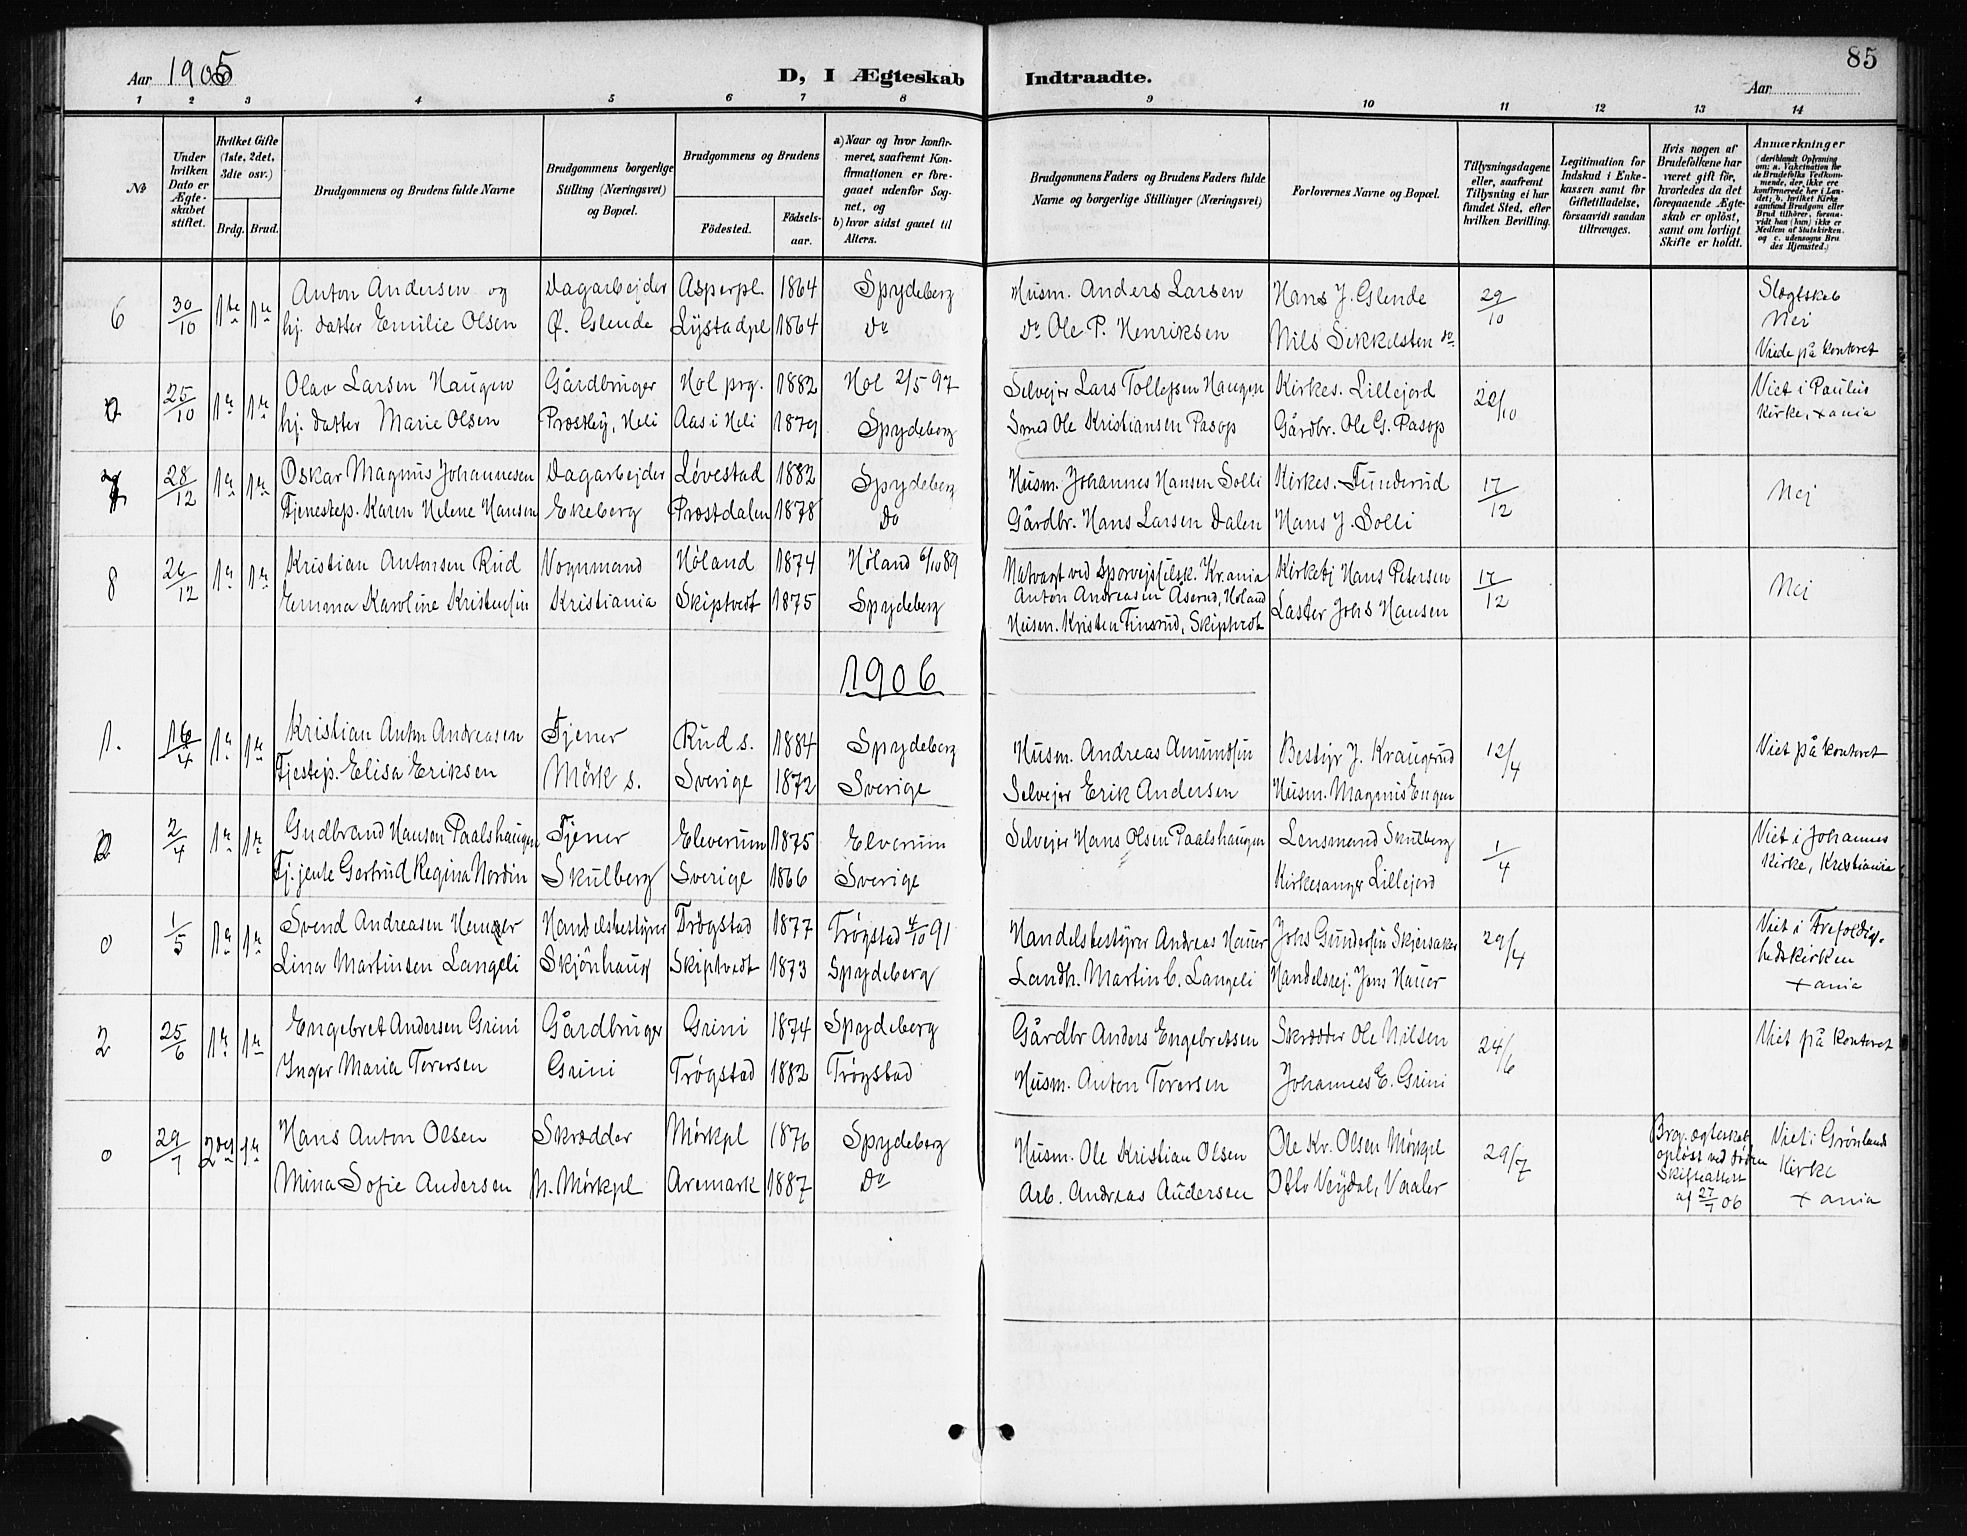 85
Aar 1905
D, I Ægteskab Indtraadte.
Aar
1 2 3 4 5 6 7 8 9 10 11 12 13 14
No
Under hvilken Dato er Ægteskabet stiftet.
Hvilket Gifte (1ste, 2det, 3die osv.)
Brdg. Brud.
Brudgommens og Brudens fulde Navne
Brudgommens borgerlige Stilling (Næringsvei) og Bopæl.
Brudgommens og Brudens
Fødested. Fødselsaar.
a) Naar og hvor konfirmeret, saafremt Konfirmationen er foregaaet udenfor Sognet, og
b) hvor sidst gaaet til Alters.
Brudgommens Faders og Brudens Faders fulde Navne og borgerlige Stillinger (Næringsvei)
Forlovernes Navne og Bopæl.
Tillysningsdagene eller, saafremt Tillysning ei har fundet Sted, efter hvilken Bevilling.
Legitimation for Indskud i Enkekassen samt for Giftetilladelse, forsaavidt saadan tiltrænges.
Hvis nogen af Brudefolkene har været gift før, hvorledes da det foregaaende Ægteskab er opløst, samt om lovligt Skifte er holdt.
Anmærkninger
(deriblandt Oplysning om: a. Vakcination for de Brudefolks Vedkommende, der ikke ere konfirmerede her i Landet; b. hvilket Kirkesamfund Brudgom eller Brud tilhører, forsaavidt han (hun) ikke er Medlem af Statskirken, og c. udensogns Brudes Hjemsted.)
6 30/10 1te 1te Anton Andersen og Dagarbejder Asperpl. 1864 Spydeberg Husm. Anders Larsen Hans J. Glende 29/10 Slægtskab Nei
hj. datter Emilie Olsen Ø. Glende Lystadpl 1864 Do Do Ole P. Henriksen Nils Sikkelsten do. Viede på kontoret
0 25/10 1te 1te Olav Larsen Haugen Gårdbruger Hol prg. 1882 Hol 2/5 97 Selvejer Lars Tollefsen Haugen Kirkes. Lillejord 22/10 Viet i Paulus
hj. datter Marie Olsen Prestby, Heli Aas i Heli 1879 Spydeberg Smed Ole Kristiansen Pasop Gårdbr. Ole G. Pasop Kirke, Xania
7 28/12 1te 1te Oskar Magnus Johannesen Dagarbejder Løvestad 1882 Spydeberg Husm. Johannes Hansen Solli Kirkes. Funderud 17/12 Nej
Tjenestep. Karen Helene Hansen Ekeberg Prestdalen 1878 Do Gårdbr. Hans Larsen Dalen Hans J. Solli
8 26/12 1te 1te Kristian Antonsen Rud Vognmand Høland 1874 Høland 6/10 89 Natvagt ved Sporvejsselsk. Kr.ania Kirketj Hans Petersen 17/12 Nei
Anton Andreasen Åserud, Høland
Emma Karoline Kristensen Kristiania Skiptvedt 1875 Spydeberg Husm. Kristen Finsrud, Skiptvedt Laster Johs Hansen
1906
1. 16/4 1te 1te Kristian Anton Andreasen Tjener Rud s. 1884 Spydeberg Husm. Andreas Amundsen Bestyr J. Kraugerud 12/4 Viet på kontoret
Tjestep. Elisa Eriksen Mörk s. Sverige 1872 Sverige Selvejer Erik Andersen Husm. Magnus Engen
0 2/4 1te 1te Gudbrand Hansen Paalshaugen Tjener Elverum 1875 Elverum Selvejer Hans Olsen Paalshaugen Lensmand Skulberg 1/4 Viet i Johannes
Tj. jente Gertrud Regina Nordin Skulberg Sverige 1866 Sverige Kirkesanger Lillejord Kirke, Kristiania
0 1/5 1te 1te Svend Andreasen Handelsbestyrer Trøgstad 1877 Trøgstad 4/10 91 Handelsbestyrer Andreas Hauer Johs Gundersen Skjersaker 29/4 Viet i Trefoldig-
hedskirken
Lina Martinsen Langeli Skjönhaug Skiptvedt 1873 Spydeberg Landh. Martin C. Langeli Handelsrej. Jens Hauer Xania
2 25/6 1te 1te Engebret Andersen Grini Gårdbruger Grini 1874 Spydeberg Gårdbr Anders Engebretsen Skrædder Ole Nilsen 24/6 Viet på kontoret
Inger Maria Torersen Grini Trøgstad 1882 Trøgstad Husm. Anton Torersen Johannes E. Grini
0 29/7 2den 1te Hans Anton Olsen Skrædder Mörkpl 1876 Spydeberg Husm. Ole Kristian Olsen Ole Kr. Olsen Mørkpl 29/7 Brg. ægteskab opløst ved døden Skifteattest af 27/7 06 Viet i Grønlands
Kirke
Mina Sofie Andersen N. Mörkpl Aremark 1887 Do Arb. Andreas Andersen Otto Vejdal, Vaaler Xania